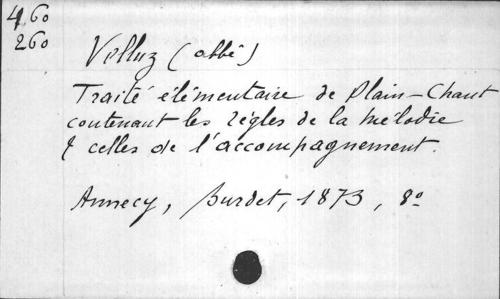 460
260
Velluz (abbé)
Traité élémentaire de Plain-Chant
contenant les règles de la mélodie
& celles de l'accompagnement.
Annecy, Burdet, 1873, 8º